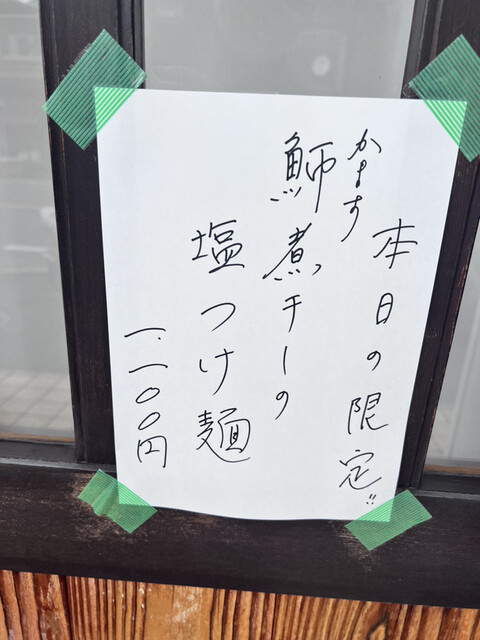 本日の限定!!
かます
魳煮干しの
塩つけ麺
一、一〇〇円